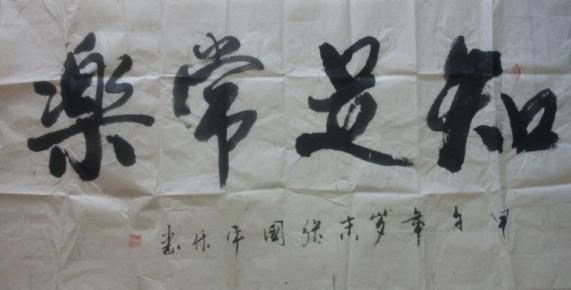 知足常樂
甲午年岁末张国平乐书